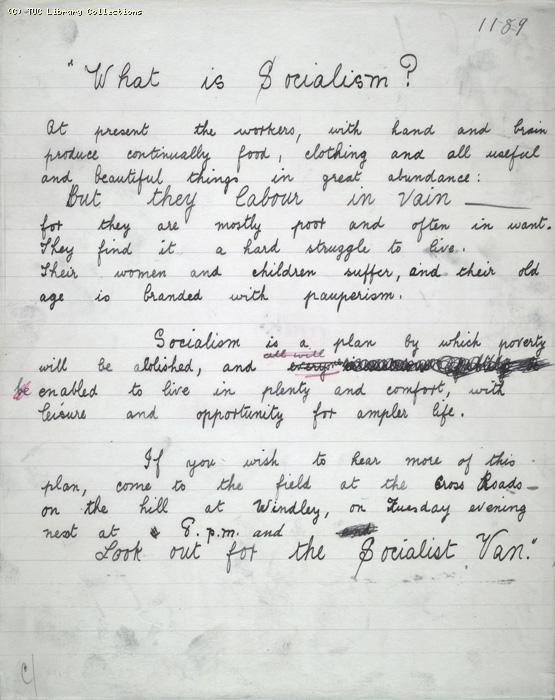 (C) TUC Library Collections
11·89
"What is Socialism?
At present the workers, with hand and brain
produce continually food, clothing and all useful
and beautiful things in great abundance:
But they labour in vain —
for they are mostly poor and often in want.
They find it a hard struggle to live.
Their women and children suffer, and their old
age is branded with pauperism.
Socialism is a plan by which poverty
all will
will be abolished, and
be enabled to live in plenty and comfort, with
leisure and opportunity for ampler life.
If you wish to hear more of this
plan, come to the field at the Cross Roads
on the hill at Windley, on Tuesday evening
next at 8. p.m. and
Look out for the Socialist Van."
C/